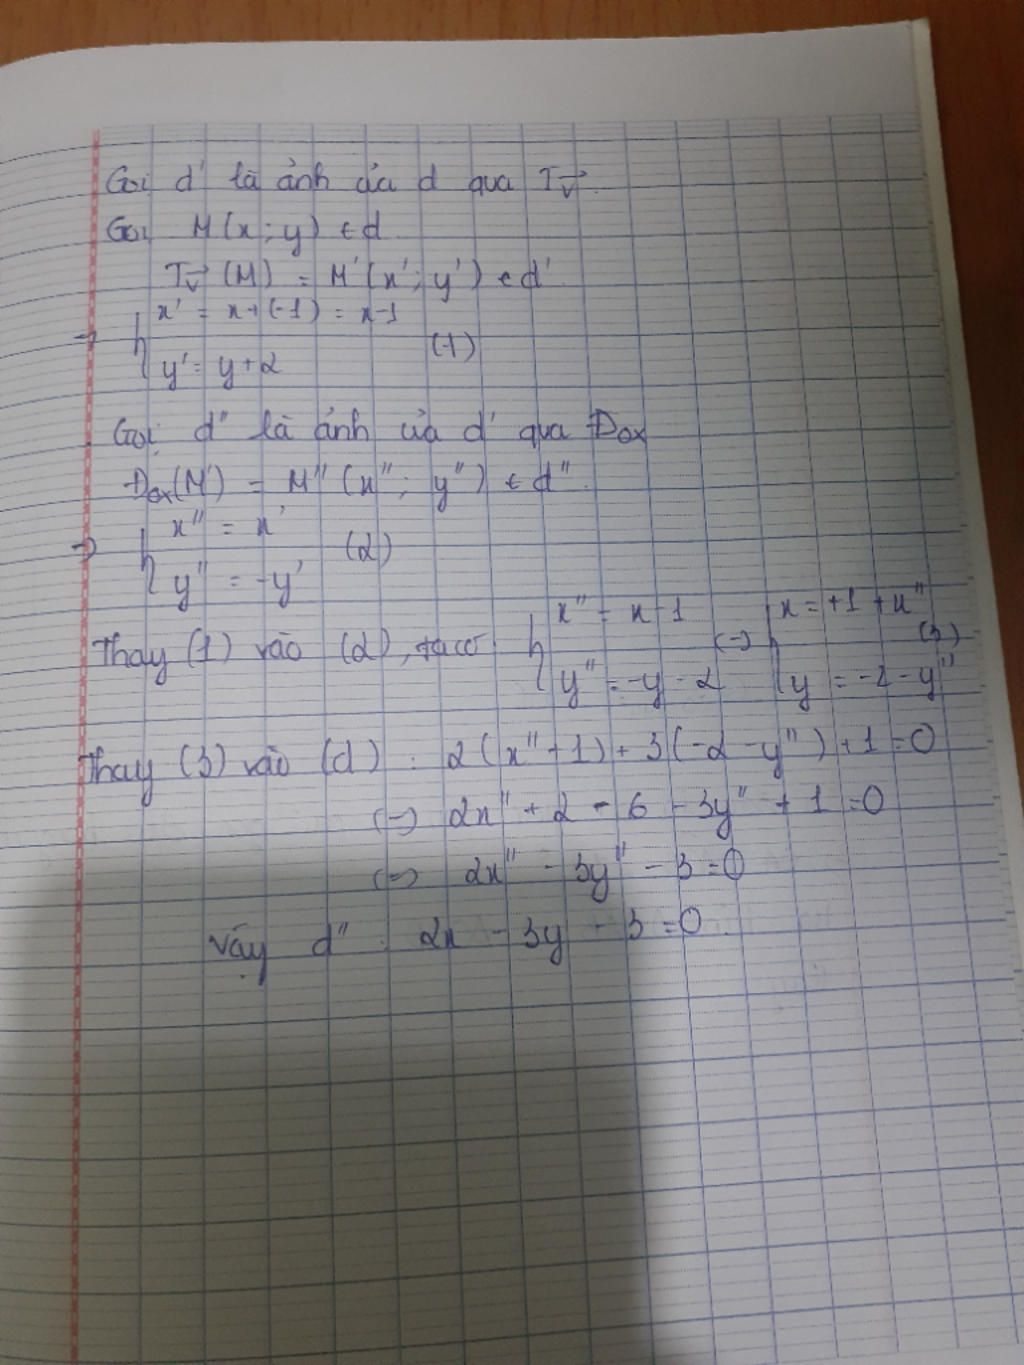 Gọi d' là ảnh của d qua Tv→.
Gọi M(x; y) ∈ d.
Tv→ (M) = M'(x'; y') ∈ d'
→ { x' = x+(-1) = x-1
y' = y+2 (1)
Gọi d" là ảnh của d' qua Đox
Đox(M') = M"(x"; y") ∈ d".
→ { x" = x'
y" = -y' (2)
Thay (1) vào (2), ta có: { x" = x-1 (=) { x = +1 + x"
y" = -y-2 y = -2-y" (3)
Thay (3) vào (d): 2(x"+1)+3(-2-y")+1=0
(=) 2x"+2-6-3y"+1=0
(=) 2x"-3y"-3=0
Vậy d": 2x-3y-3=0.